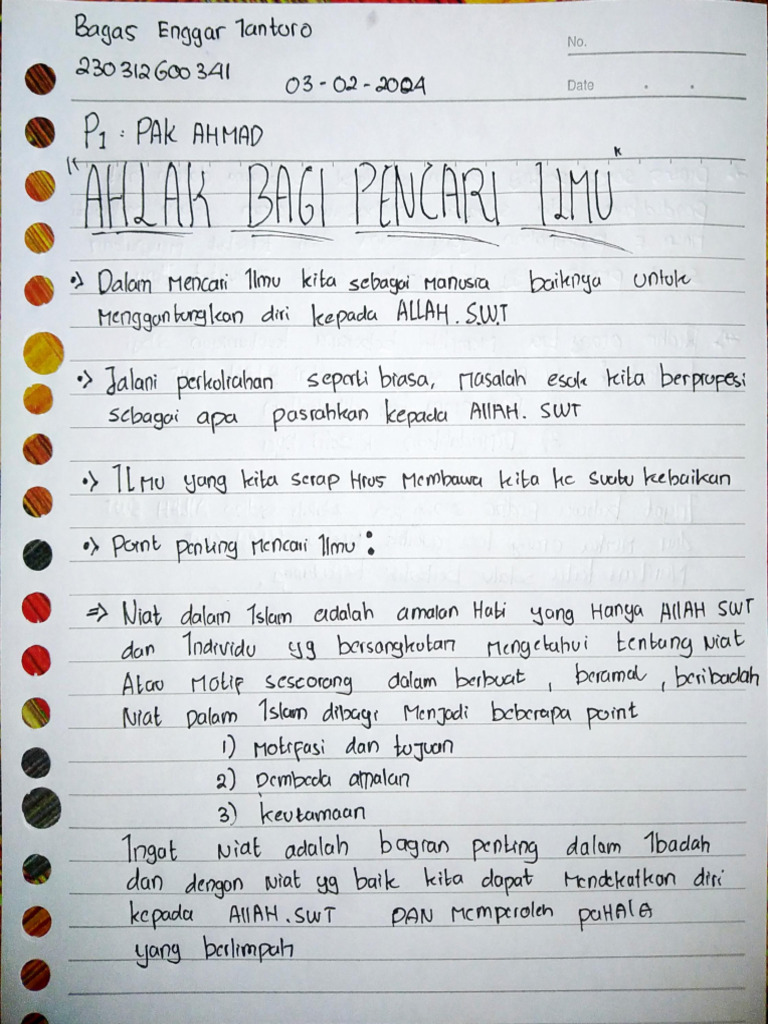 Bagas Enggar Jantoro
No.
230312600341
03-02-2024
Date
P1 : PAK AHMAD
"AHLAK BAGI PENCARI ILMU"
•> Dalam Mencari Ilmu kita sebagai Manusia baiknya untuk
Menggantungkan diri kepada ALLAH.S.W.T
•> Jalani perkuliahan seperti biasa, Masalah esok kita berprofesi
sebagai apa pasrahkan kepada AllAH. SWT
•> ILMU yang kita serap Hrus Membawa kita ke suatu kebaikan
•> Point penting Mencari Ilmu :
=> Niat dalam Islam adalah amalan Hati yang Hanya AllAH SWT
dan Individu yg bersangkutan Mengetahui tentang Niat
Atau Motif seseorang dalam berbuat, beramal, beribadah
Niat Dalam Islam dibagi Menjadi beberapa point
1) Motifasi dan tujuan
2) Pembeda amalan
3) keutamaan
Ingat Niat adalah bagian penting dalam Ibadah
dan dengan Niat yg baik kita dapat Mendekatkan diri
kepada AllAH.SWT DAN Memperoleh paHAlA
yang berlimpah